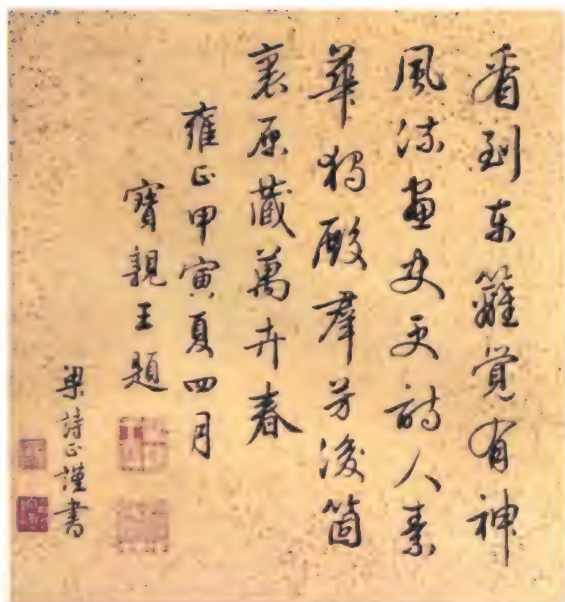 看到东籬覚有神
風流畫史更詩人素
華獨殿羣芳後箇
裏原藏萬卉春
雍正甲寅夏四月
寶親王題
梁詩正謹書